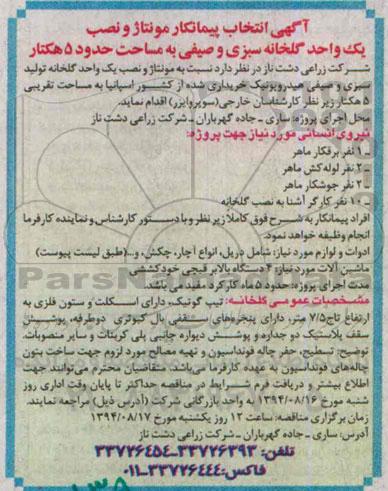 آگهی انتخاب پیمانکار مونتاژ و نصب
یک واحد گلخانه سبزی و صیفی به مساحت حدود ۵ هکتار
شرکت زراعی دشت ناز در نظر دارد نسبت به مونتاژ و نصب یک واحد گلخانه تولید
سبزی و صیفی هیدروپونیک خریداری شده از کشور اسپانیا به مساحت تقریبی
۵ هکتار زیر نظر کارشناسان خارجی (سوپروایزر) اقدام نماید.
محل اجرای پروژه: ساری ـ جاده گهرباران ـ شرکت زراعی دشت ناز
نیروی انسانی مورد نیاز جهت پروژه:
ـ ۱ نفر برقکار ماهر
ـ ۲ نفر لوله‌کش ماهر
ـ ۲ نفر جوشکار ماهر
ـ ۱۰ نفر کارگر آشنا به نصب گلخانه
افراد پیمانکار به شرح فوق کاملا زیر نظر و با دستور کارشناس و نماینده کارفرما
انجام وظیفه خواهد نمود.
ادوات و لوازم مورد نیاز: شامل دریل، انواع آچار، چکش، و..(طبق لیست پیوست)
ماشین آلات مورد نیاز: ۴ دستگاه بالابر قیچی خودکششی
مدت اجرای پروژه: حدود ۵ ماه کارکرد مفید می باشد.
مشخصات عمومی گلخانه: تیپ گوتیک، دارای اسکلت و ستون فلزی به
ارتفاع تاج ۷/۵ متر، دارای پنجره‌های سقفی بال کبوتری دوطرفه، پوشش
سقف پلاستیک دو جداره و پوشش دیواره جانبی پلی کربنات و سایر منصوبات.
توضیح: تسطیح، حفر چاله فونداسیون و تهیه مصالح مورد لزوم جهت ساخت بتون
چاله‌های فونداسیون به عهده کارفرما می‌باشد. متقاضیان محترم می‌توانند جهت
اطلاع بیشتر و دریافت فرم شرایط در مناقصه حداکثر تا پایان وقت اداری روز
شنبه مورخ ۱۳۹۴/۰۸/۱۶ به واحد بازرگانی شرکت (آدرس ذیل) مراجعه نمایند.
زمان برگزاری مناقصه: ساعت ۱۲ روز یکشنبه مورخ ۱۳۹۴/۰۸/۱۷
آدرس: ساری ـ جاده گهرباران ـ شرکت زراعی دشت ناز
تلفن: ۳۳۷۲۶۳۹۳ـ۳۳۷۲۶۴۵۴
فاکس: ۳۳۷۲۶۴۴۴ـ۰۱۱